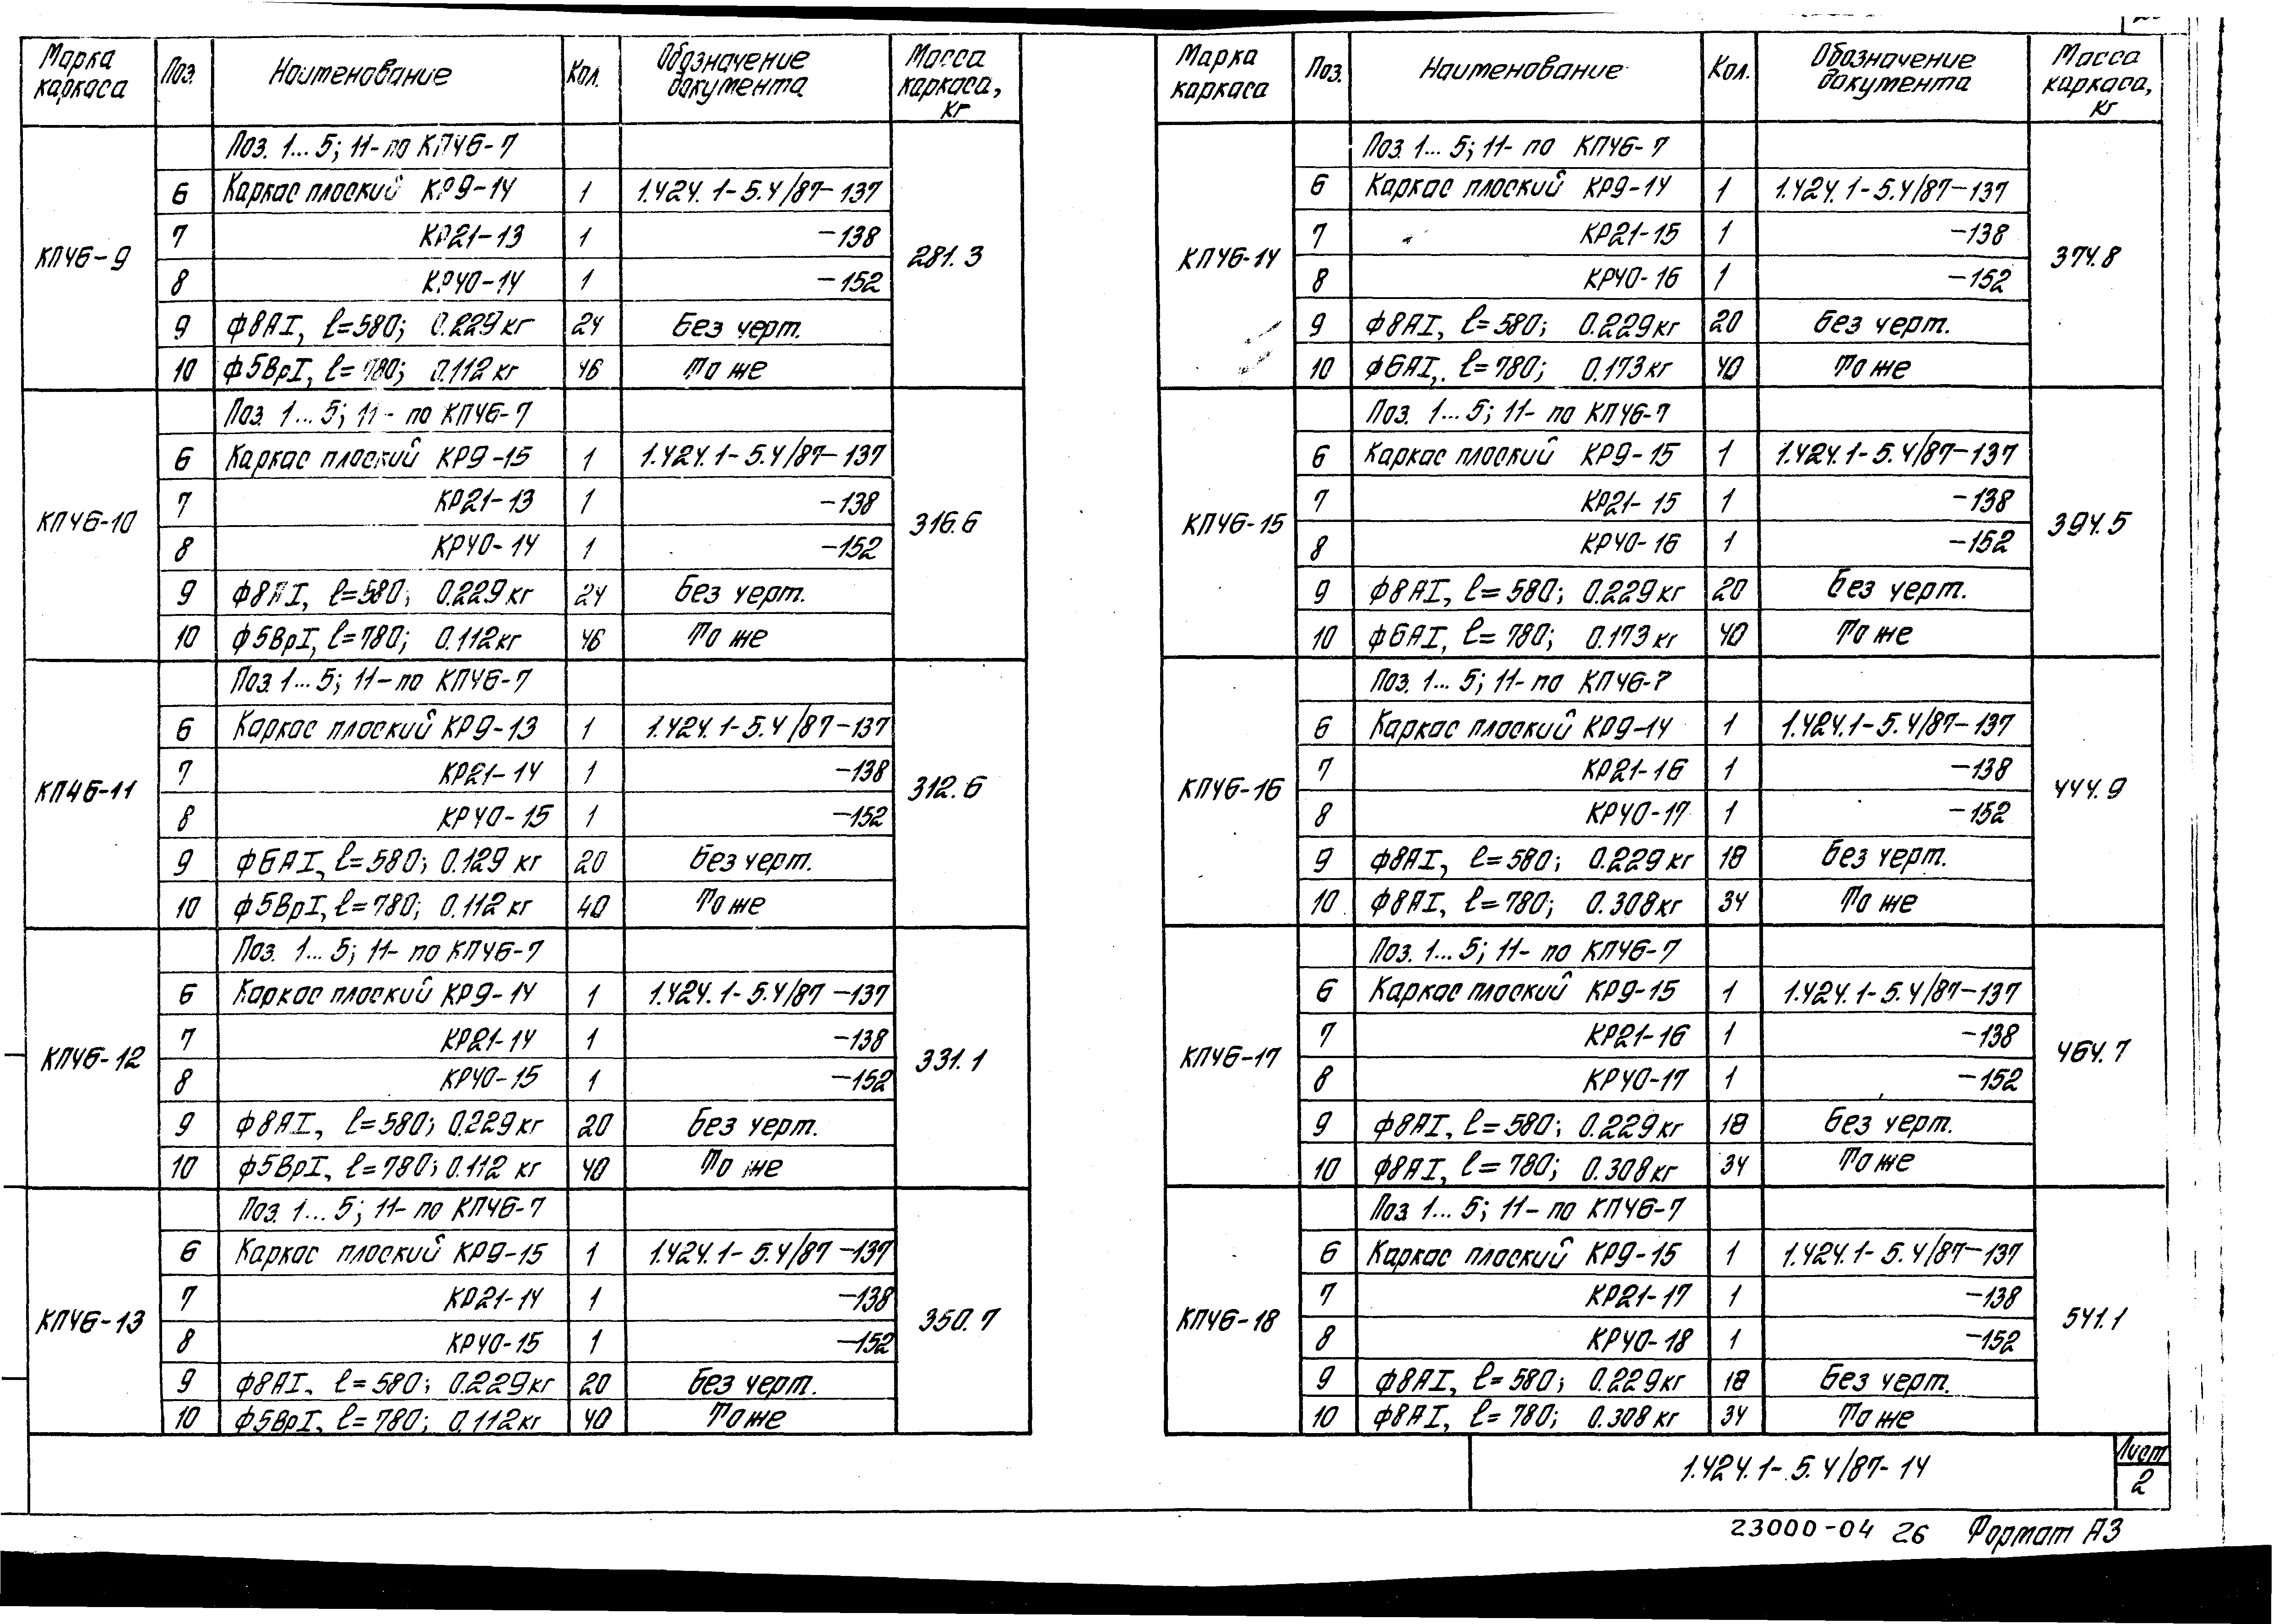 Марка каркаса Поз. Наименование Кол. Обозначение документа Масса каркаса, кг
Поз. 1...5; 11- по КП46-7
6 Каркас плоский КР9-14 1 1.424.1-5.4/87-137
7 КР21-13 1 -138
КП46-9 281.3
8 КР40-14 1 -152
9 Ф8АI, ℓ=580; 0.229кг 24 Без черт.
10 Ф5ВрI, ℓ=780; 0.112кг 46 То же
Поз. 1...5; 11- по КП46-7
6 Каркас плоский КР9-15 1 1.424.1-5.4/87-137
7 КР21-13 1 -138
КП46-10 316.6
8 КР40-14 1 -152
9 Ф8АI, ℓ=580; 0.229кг 24 Без черт.
10 Ф5ВрI, ℓ=780; 0.112кг 46 То же
Поз. 1...5; 11- по КП46-7
6 Каркас плоский КР9-13 1 1.424.1-5.4/87-137
7 КР21-14 1 -138
КП46-11 312.6
8 КР40-15 1 -152
9 Ф6АI, ℓ=580; 0.129кг 20 Без черт.
10 Ф5ВрI, ℓ=780; 0.112кг 40 То же
Поз. 1...5; 11- по КП46-7
6 Каркас плоский КР9-14 1 1.424.1-5.4/87-137
7 КР21-14 1 -138
КП46-12 331.1
8 КР40-15 1 -152
9 Ф8АI, ℓ=580; 0.229кг 20 Без черт.
10 Ф5ВрI, ℓ=780; 0.112кг 40 То же
Поз. 1...5; 11- по КП46-7
6 Каркас плоский КР9-15 1 1.424.1-5.4/87-137
7 КР21-14 1 -138
КП46-13 350.7
8 КР40-15 1 -152
9 Ф8АI, ℓ=580; 0.229кг 20 Без черт.
10 Ф5ВрI, ℓ=780; 0.112кг 40 То же
Марка каркаса Поз. Наименование Кол. Обозначение документа Масса каркаса, кг
Поз. 1...5; 11- по КП46-7
6 Каркас плоский КР9-14 1 1.424.1-5.4/87-137
7 КР21-15 1 -138
КП46-14 374.8
8 КР40-16 1 -152
9 Ф8АI, ℓ=580; 0.229кг 20 Без черт.
10 Ф6АI, ℓ=780; 0.173кг 40 То же
Поз. 1...5; 11- по КП46-7
6 Каркас плоский КР9-15 1 1.424.1-5.4/87-137
7 КР21-15 1 -138
КП46-15 394.5
8 КР40-16 1 -152
9 Ф8АI, ℓ=580; 0.229кг 20 Без черт.
10 Ф6АI, ℓ=780; 0.173кг 40 То же
Поз. 1...5; 11- по КП46-7
6 Каркас плоский КР9-14 1 1.424.1-5.4/87-137
7 КР21-16 1 -138
КП46-16 444.9
8 КР40-17 1 -152
9 Ф8АI, ℓ=580; 0.229кг 18 Без черт.
10 Ф8АI, ℓ=780; 0.308кг 34 То же
Поз. 1...5; 11- по КП46-7
6 Каркас плоский КР9-15 1 1.424.1-5.4/87-137
7 КР21-16 1 -138
КП46-17 464.7
8 КР40-17 1 -152
9 Ф8АI, ℓ=580; 0.229кг 18 Без черт.
10 Ф8АI, ℓ=780; 0.308кг 34 То же
Поз. 1...5; 11- по КП46-7
6 Каркас плоский КР9-15 1 1.424.1-5.4/87-137
7 КР21-17 1 -138
КП46-18 541.1
8 КР40-18 1 -152
9 Ф8АI, ℓ=580; 0.229кг 18 Без черт.
10 Ф8АI, ℓ=780; 0.308кг 34 То же
1.424.1-5.4/87-14
Лист
2
23000-04 26 Формат А3